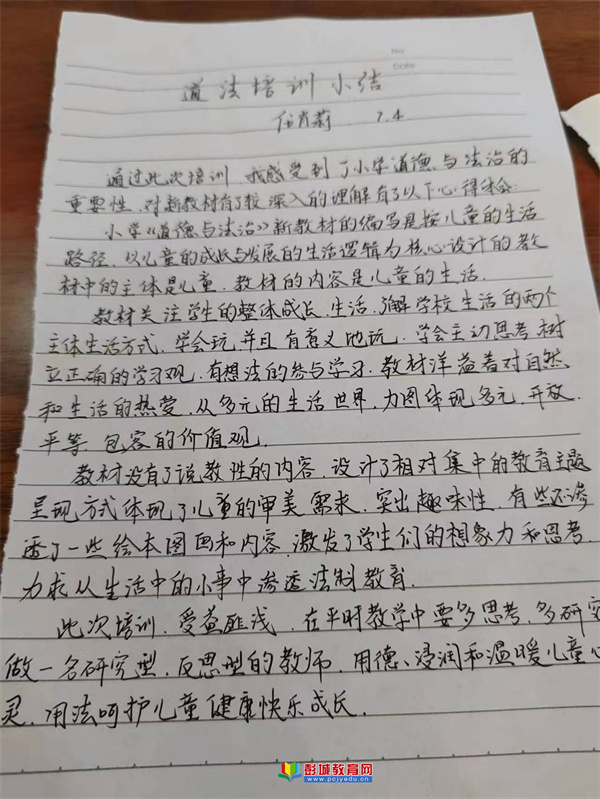 No
Date
道法培训小结
任肖莉 7.4
通过此次培训,我感受到了小学道德与法治的
重要性,对新教材有了较深入的理解有了以下心得体会:
小学《道德与法治》新教材的编写是按儿童的生活
路径,以儿童的成长与发展的生活逻辑为核心设计的教
材中的主体是儿童,教材的内容是儿童的生活.
教材关注学生的整体成长、生活,理解学校生活的两个
主体生活方式,学会玩,并且有意义地玩,学会主动思考树
立正确的学习观,有想法的参与学习.教材洋益着对自然
和生活的热爱,从多元的生活世界,力图体现多元,开放.
平等.包容的价值观.
教材没有了说教性的内容,设计了相对集中的教育主题
呈现方式体现了儿童的审美需求,突出趣味性,有些还渗
透了一些绘本图画和内容,激发了学生们的想象力和思考.
力求从生活中的小事中渗透法制教育.
此次培训,受益匪浅,在平时教学中要多思考,多研究
做一名研究型,反思型的教师,用德、浸润和温暖儿童心
灵,用法呵护儿童健康快乐成长.
彭城教育网
www.pcjyedu.cn